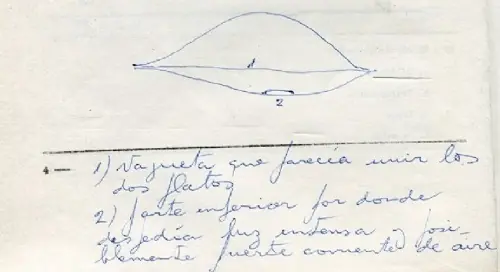 1
2
4 —
1) Vagueta que parecía unir los
dos platos
2) parte inferior por donde
despedía luz intensa y posi-
blemente fuerte corriente de aire